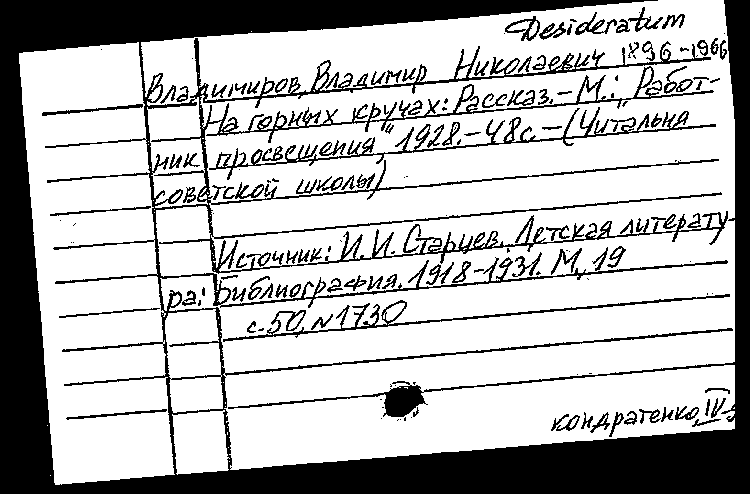 Desideratum
Владимиров, Владимир Николаевич 1896-1966
На горных кручах: Рассказ.-М.: „Работ-
ник просвещения", 1928.-48с.-(Читальня
советской школы)
Источник: И.И.Старцев. Детская литерату-
ра: Библиография. 1918-1931. М., 19
с.50, №1730
Кондратенко, IV-